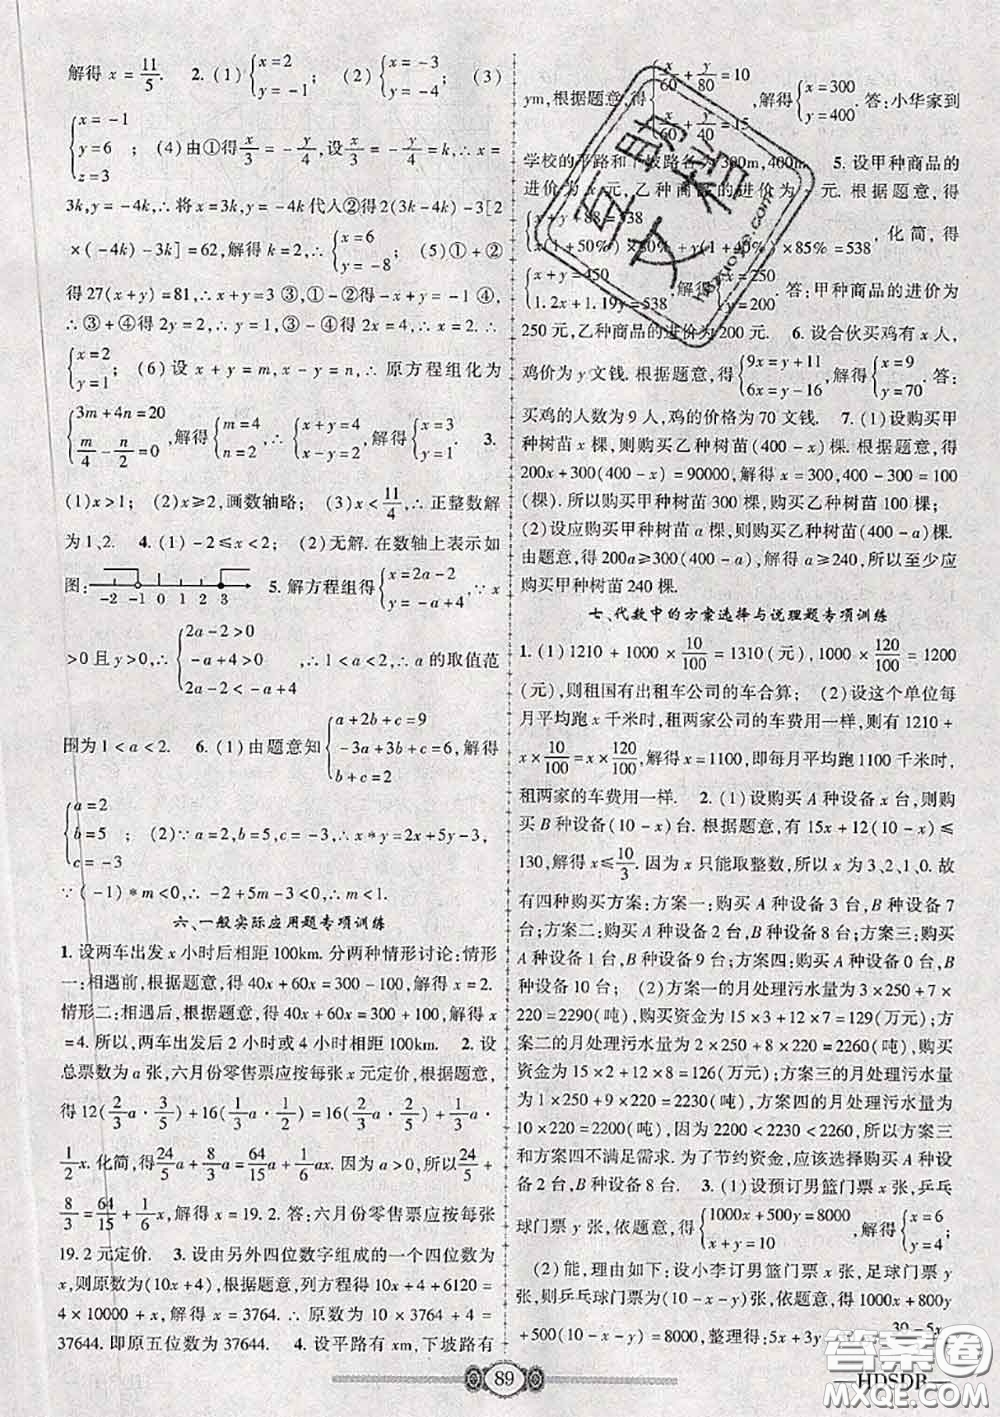 解得 x = 11/5. 2. (1) {x=2 y=-1 ; (2) {x=-3 y=-4 ; (3)
{x=-1 y=6 z=3 ; (4)由①得 x/3 = -y/4, 设 x/3 = -y/4 = k, ∴ x =
3k, y = -4k, ∴ 将 x = 3k, y = -4k 代人②得 2(3k-4k)-3[2
×(-4k)-3k]=62, 解得 k=2, ∴ {x=6 y=-8 ; (5)①+②
得 27(x+y)=81, ∴ x+y=3 ③, ①-②得 -x+y=-1 ④,
∴ ③+④得 2y=2, ∴ y=1, ③-④得 2x=4, ∴ x=2, ∴
{x=2 y=1 ; (6)设 x+y=m, x-y=n, ∴ 原方程组化为
{3m+4n=20 m/4-n/2=0 , 解得 {m=4 n=2 , ∴ {x+y=4 x-y=2 , 解得 {x=3 y=1 . 3.
(1)x>1; (2)x≥2, 画数轴略; (3)x<11/4, ∴ 正整数解
为 1、2. 4. (1) -2≤x<2; (2)无解. 在数轴上表示如
图: -2 -1 0 1 2 3 5. 解方程组得 {x=2a-2 y=-a+4 , ∵ x
>0 且 y>0, ∴ {2a-2>0 -a+4>0 2a-2<-a+4 , ∴ 1<a<2, ∴ a 的取值范
围为 1<a<2. 6. (1)由题意知 {a+2b+c=9 -3a+3b+c=6 b+c=2 , 解得
{a=2 b=5 c=-3 ; (2)∵ a=2, b=5, c=-3, ∴ x*y=2x+5y-3,
∵ (-1)*m<0, ∴ -2+5m-3<0, ∴ m<1.
六、一般实际应用题专项训练
1. 设两车出发 x 小时后相距 100km. 分两种情形讨论:情形
一:相遇前, 根据题意, 得 40x+60x=300-100, 解得 x=2.
情形二:相遇后, 根据题意, 得 40x+60x=300+100, 解得 x
=4. 所以, 两车出发后 2 小时或 4 小时相距 100km. 2. 设
总票数为 a 张, 六月份零售票应按每张 x 元定价, 根据题意,
得 12(2/3a·3/5)+16(2/3a·2/5)=16(1/3a·1/2)+1/3a·
1/2x. 化简, 得 24/5a+8/3a=64/15a+1/6ax. 因为 a>0, 所以 24/5+
8/3=64/15+1/6x, 解得 x=19.2. 答:六月份零售票应按每张
19.2 元定价. 3. 设由另外四位数字组成的一个四位数为
x, 则原数为(10x+4), 根据题意, 列方程得 10x+4+6120=
4×10000+x, 解得 x=3764. ∴ 原数为 10×3764+4=
37644. 即原五位数为 37644. 4. 设平路有 xm, 下坡路有
ym, 根据题意, 得 {x/60+y/80=10 x/60+y/40=15 , 解得 {x=300 y=400 . 答:小华家到
学校的平路和下坡路各为 300m, 400m. 5. 设甲种商品的
进价为 x 元, 乙种商品的进价为 y 元. 根据题意, 得
{x+y+88=538 x(1+50%)×80%+y(1+40%)×85%=538 , 化简, 得
{x+y=450 1.2x+1.19y=538 , 解得 {x=250 y=200 . 答:甲种商品的进价为
250 元, 乙种商品的进价为 200 元. 6. 设合伙买鸡有 x 人,
鸡价为 y 文钱. 根据题意, 得 {9x=y+11 6x=y-16 , 解得 {x=9 y=70 . 答:
买鸡的人数为 9 人, 鸡的价格为 70 文钱. 7. (1)设购买甲
种树苗 x 棵, 则购买乙种树苗(400-x)棵. 根据题意, 得
200x+300(400-x)=90000, 解得 x=300, 400-x=100
(棵). 所以购买甲种树苗 300 棵, 购买乙种树苗 100 棵;
(2)设应购买甲种树苗 a 棵, 则购买乙种树苗(400-a)棵.
由题意, 得 200a≥300(400-a), 解得 a≥240, 所以至少应
购买甲种树苗 240 棵.
七、代数中的方案选择与说理题专项训练
1. (1)1210+1000×10/100=1310(元), 1000×120/100=1200
(元), 则租国有出租车公司的车合算; (2)设这个单位每
月平均跑 x 千米时, 租两家公司的车费用一样, 则有 1210+
x×10/100=x×120/100, 解得 x=1100, 即每月平均跑 1100 千米时,
租两家的车费用一样. 2. (1)设购买 A 种设备 x 台, 则购
买 B 种设备(10-x)台. 根据题意, 有 15x+12(10-x)≤
130, 解得 x≤10/3. 因为 x 只能取整数, 所以 x 为 3、2、1、0. 故
有四种购买方案:方案一:购买 A 种设备 3 台, B 种设备 7
台;方案二:购买 A 种设备 2 台, B 种设备 8 台;方案三:购买
A 种设备 1 台, B 种设备 9 台;方案四:购买 A 种设备 0 台,
B 种设备 10 台; (2)方案一的月处理污水量为 3×250+7×
220=2290(吨), 购买资金为 15×3+12×7=129(万元);方
案二的月处理污水量为 2×250+8×220=2260(吨), 购买
资金为 15×2+12×8=126(万元);方案三的月处理污水量为
1×250+9×220=2230(吨);方案四的月处理污水量为
10×220=2200(吨). 因为 2200<2230<2260, 所以方案三
和方案四不满足需求. 为了节约资金, 应该选择购买 A 种设
备 2 台, B 种设备 8 台. 3. (1)设预订男篮门票 x 张, 乒乓
球门票 y 张, 依题意, 得 {1000x+500y=8000 x+y=10 , 解得 {x=6 y=4 ;
(2)能, 理由如下:设小李订男篮门票 x 张, 足球门票 y
张, 则乒乓球门票为(10-x-y)张, 依题意, 得 1000x+800y
+500(10-x-y)=8000, 整理得:5x+3y
89
HDSDB
互助文档
答案圈
MXQE.COM